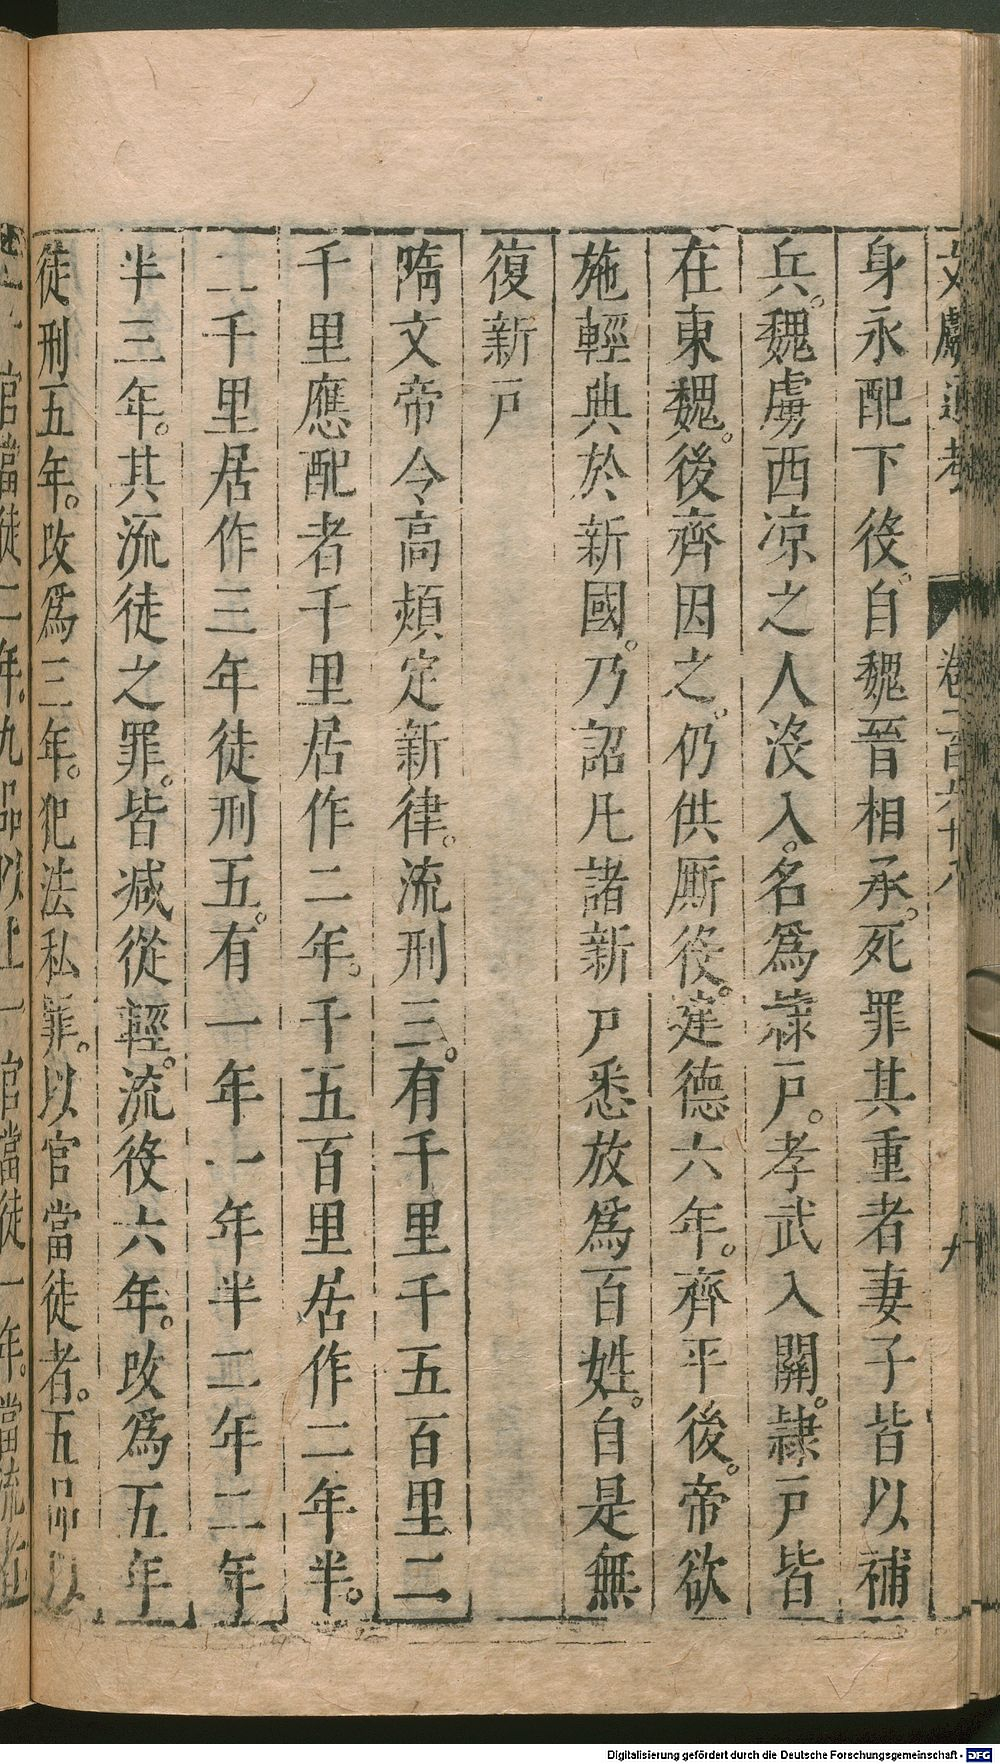 文獻通考 卷一百六十八 九
身永配下役。自魏晉相承。死罪其重者妻子皆以補
兵。魏虜西凉之人沒入。名爲隸戸。孝武入關。隸戸皆
在東魏。後齊因之。仍供厮役。建德六年。齊平後。帝欲
施輕典於新國。乃詔凡諸新戸悉放爲百姓。自是無
復新戸
隋文帝令高熲定新律。流刑三。有千里千五百里二
千里應配者千里居作二年。千五百里居作二年半。
二千里居作三年徒刑五。有一年一年半二年二年
半三年。其流徒之罪。皆减從輕。流役六年。改爲五年
徒刑五年。改爲三年。犯法私罪。以官當徒者。五品以
官當徒二年。九品以上一官當徒一年。當流者
Digitalisierung gefördert durch die Deutsche Forschungsgemeinschaft - DFG